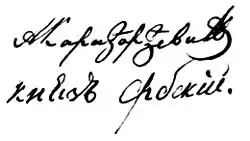 А Карађорђевић
князъ србскій.